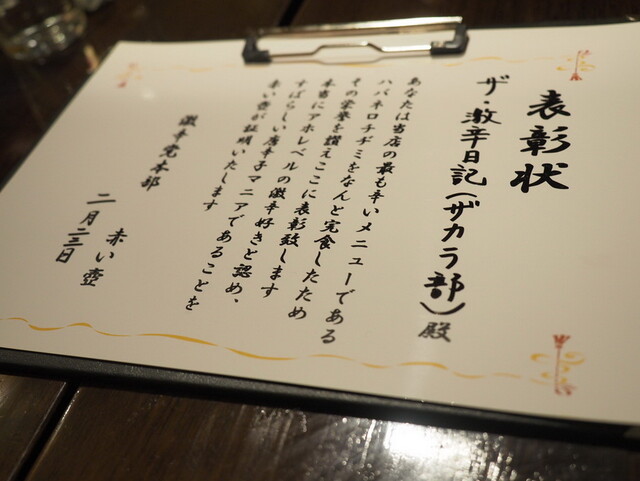 表彰状
ザ・激辛日記(ザカラ部)殿
あなたは当店の最も辛いメニューである
ハバネロチヂミをなんと完食したため
その栄誉を讃えここに表彰致します
本当にアホレベルの激辛好きと認め、
すばらしい唐辛子マニアであることを
赤い壺が証明いたします
激辛党本部
赤い壺
二月二三日